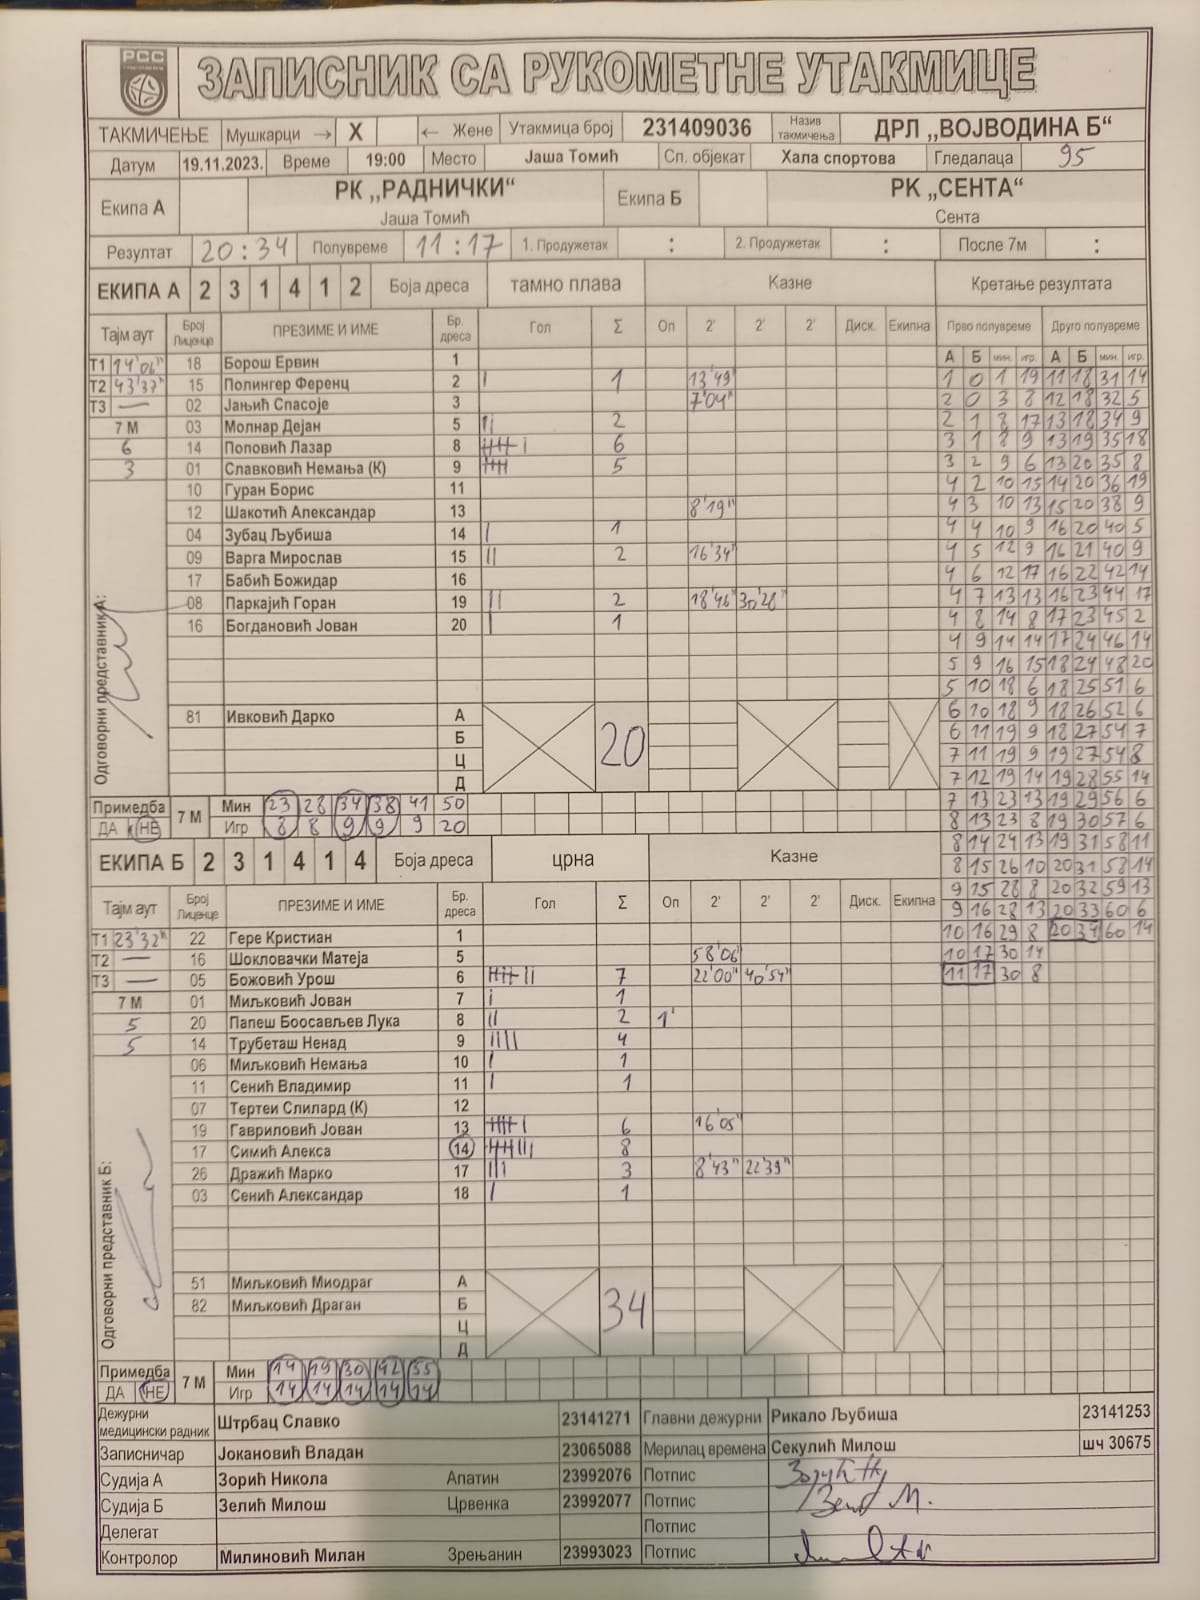 РСС
ЗАПИСНИК СА РУКОМЕТНЕ УТАКМИЦЕ
ТАКМИЧЕЊЕ Мушкарци → X ← Жене Утакмица број 231409036 Назив такмичења ДРЛ ,,ВОЈВОДИНА Б“
Датум 19.11.2023. Време 19:00 Место Јаша Томић Сп. објекат Хала спортова Гледалаца 95
Екипа А РК ,,РАДНИЧКИ“ Јаша Томић Екипа Б РК „СЕНТА“ Сента
Резултат 20:34 Полувреме 11:17 1. Продужетак : 2. Продужетак : После 7м :
ЕКИПА А 2 3 1 4 1 2 Боја дреса тамно плава Казне Кретање резултата
Тајм аут Број Лиценце ПРЕЗИМЕ И ИМЕ Бр. дреса Гол Σ Оп 2' 2' 2' Диск. Екипна Прво полувреме Друго полувреме
Т1 14'06" 18 Борош Ервин 1 А Б мин. игр. А Б мин. игр.
Т2 43'37" 15 Полингер Ференц 2 I 1 13'49" 1 0 1 19 11 18 31 14
Т3 — 02 Јањић Спасоје 3 7'04" 2 0 3 8 12 18 32 5
7 М 03 Молнар Дејан 5 II 2 2 1 8 17 13 18 34 9
6 14 Поповић Лазар 8 IIIII I 6 3 1 8 9 13 19 35 18
3 01 Славковић Немања (К) 9 IIIII 5 3 2 9 6 13 20 35 8
10 Гуран Борис 11 4 2 10 15 14 20 36 19
12 Шакотић Александар 13 8'19" 4 3 10 13 15 20 38 9
04 Зубац Љубиша 14 I 1 4 4 10 9 16 20 40 5
09 Варга Мирослав 15 II 2 16'34" 4 5 12 9 16 21 40 9
17 Бабић Божидар 16 4 6 12 17 16 22 42 14
08 Паркајић Горан 19 II 2 18'46" 30'28" 4 7 13 13 16 23 44 17
16 Богдановић Јован 20 I 1 4 8 14 8 17 23 45 2
4 9 14 14 17 24 46 14
5 9 16 15 18 24 48 20
5 10 18 6 18 25 51 6
Одговорни представник А:
81 Ивковић Дарко А 20 6 10 18 9 18 26 52 6
Б 6 11 19 9 18 27 54 7
Ц 7 11 19 9 19 27 54 8
Д 7 12 19 14 19 28 55 14
Примедба 7 М Мин 23 28 34 38 41 50 7 13 23 13 19 29 56 6
ДА НЕ Игр 8 8 9 9 9 20 8 13 23 8 19 30 57 6
ЕКИПА Б 2 3 1 4 1 4 Боја дреса црна Казне 8 14 24 13 19 31 58 11
8 15 26 10 20 31 58 14
Тајм аут Број Лиценце ПРЕЗИМЕ И ИМЕ Бр. дреса Гол Σ Оп 2' 2' 2' Диск. Екипна 9 15 28 8 20 32 59 13
9 16 28 13 20 33 60 6
Т1 23'32" 22 Гере Кристиан 1 10 16 29 8 20 34 60 14
Т2 — 16 Шокловачки Матеја 5 58'06" 10 17 30 14
Т3 — 05 Божовић Урош 6 IIIII II 7 22'00" 40'54" 11 17 30 8
7 М 01 Миљковић Јован 7 I 1
5 20 Папеш Боосављев Лука 8 II 2 1'
5 14 Трубеташ Ненад 9 IIII 4
06 Миљковић Немања 10 I 1
11 Сенић Владимир 11 I 1
07 Тертеи Слилард (К) 12
19 Гавриловић Јован 13 IIIII I 6 16'05"
17 Симић Алекса 14 IIIII III 8
26 Дражић Марко 17 III 3 8'43" 22'39"
03 Сенић Александар 18 I 1
Одговорни представник Б:
51 Миљковић Миодраг А 34
82 Миљковић Драган Б
Ц
Д
Примедба 7 М Мин 14 19 30 42 55
ДА НЕ Игр 14 14 14 14 14
Дежурни медицински радник Штрбац Славко 23141271 Главни дежурни Рикало Љубиша 23141253
Записничар Јокановић Владан 23065088 Мерилац времена Секулић Милош шч 30675
Судија А Зорић Никола Апатин 23992076 Потпис
Судија Б Зелић Милош Црвенка 23992077 Потпис
Делегат Потпис
Контролор Милиновић Милан Зрењанин 23993023 Потпис